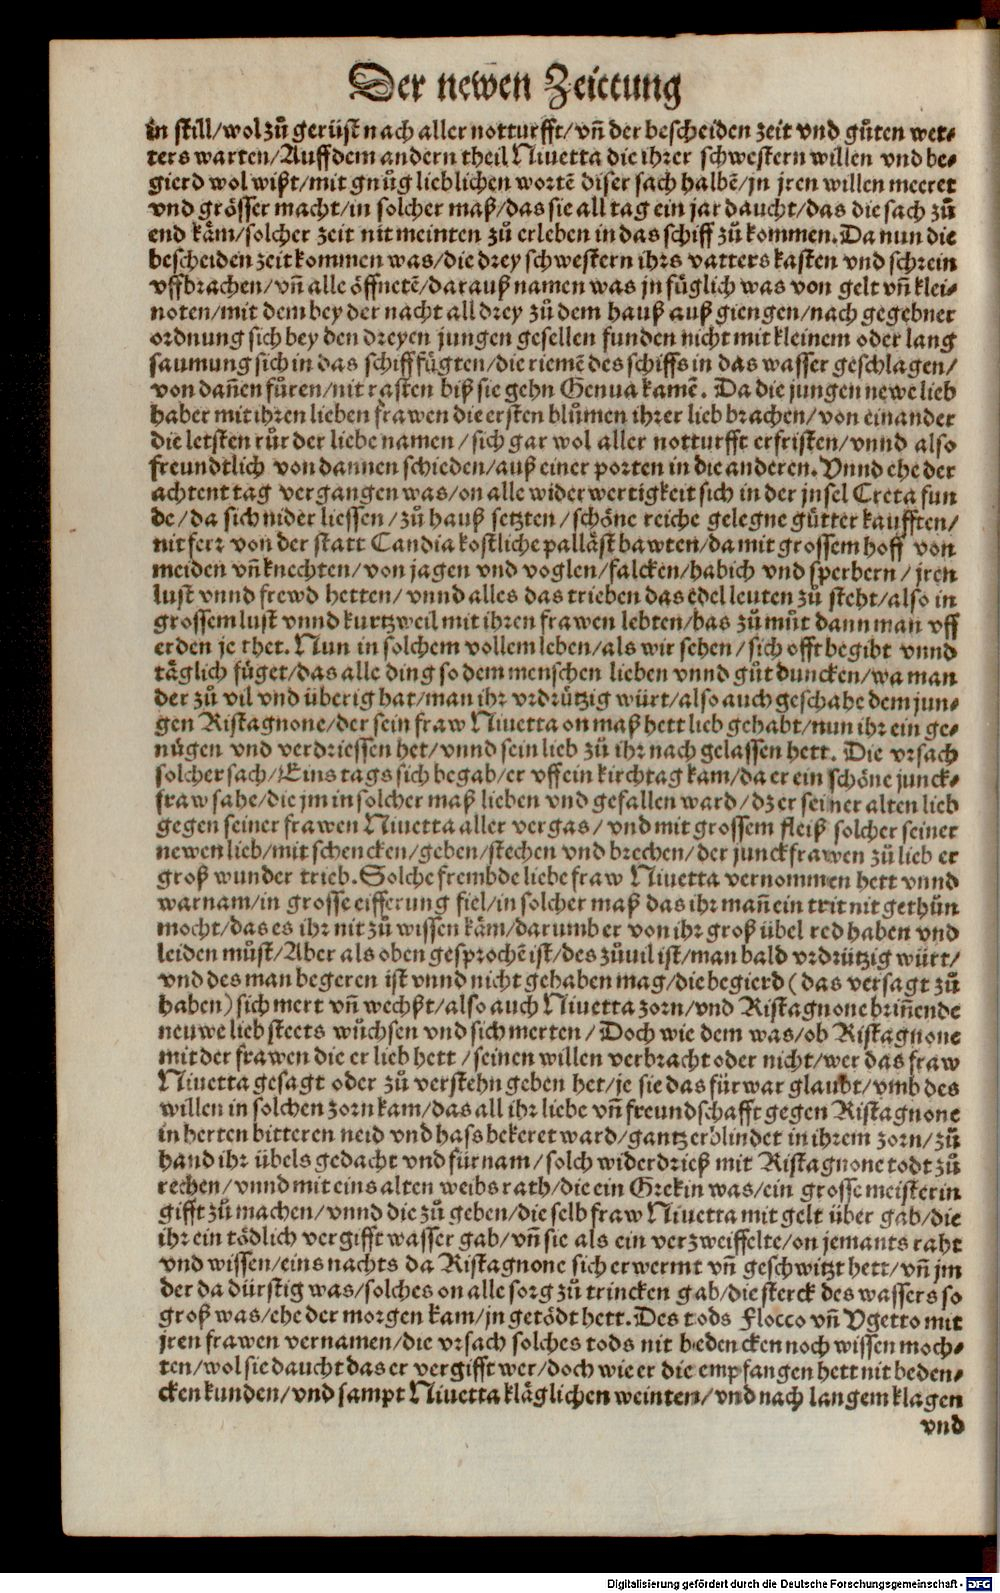 Der newen Zeittung
in still/wol zů gerüst nach aller notturfft/vñ der bescheiden zeit vnd gůten wet-
ters warten/Auff dem andern theil Niuetta die ihrer schwestern willen vnd be-
gierd wol wißt/mit gnůg lieblichen wortẽ diser sach halbẽ/jn jren willen meeret
vnd grösser macht/in solcher maß/das sie all tag ein jar daucht/das die sach zů
end käm/solcher zeit nit meinten zů erleben in das schiff zů kommen. Da nun die
bescheiden zeit kommen was/die drey schwestern ihrs vatters kasten vnd schrein
vffbrachen/vñ alle öffnetẽ/darauß namen was jn füglich was von gelt vñ klei-
noten/mit dem bey der nacht all drey zů dem hauß auß giengen/nach gegebner
ordnung sich bey den dreyen jungen gesellen funden nicht mit kleinem oder lang
saumung sich in das schiff fügten/die riemẽ des schiffs in das wasser geschlagen/
von dañen fůren/nit rasten biß sie gehn Genua kamẽ. Da die jungen newe lieb
haber mit ihren lieben frawen die ersten blůmen ihrer lieb brachen/von einander
die letsten růr der liebe namen/sich gar wol aller notturfft erfristen/vnnd also
freundtlich von dannen schieden/auß einer porten in die anderen. Vnnd ehe der
achtent tag vergangen was/on alle widerwertigkeit sich in der jnsel Creta fun
de/da sich nider liessen/zů hauß setzten/schöne reiche gelegne gütter kaufften/
nit ferr von der statt Candia kostliche palläst bawten/da mit grossem hoff von
meiden vñ knechten/von jagen vnd voglen/falcken/habich vnd sperbern/jren
lust vnnd frewd hetten/vnnd alles das trieben das edel leuten zů steht/also in
grossem lust vnnd kurtzweil mit ihren frawen lebten/bas zů můt dann man vff
erden je thet. Nun in solchem vollem leben/als wir sehen/sich offt begibt vnnd
täglich füget/das alle ding so dem menschen lieben vnnd gůt duncken/wa man
der zů vil vnd überig hat/man ihr vrdrützig würt/also auch geschahe dem jun-
gen Ristagnone/der sein fraw Niuetta on maß hett lieb gehabt/nun ihr ein ge-
nügen vnd verdriessen het/vnnd sein lieb zů ihr nach gelassen hett. Die vrsach
solcher sach/Eins tags sich begab/er vff ein kirchtag kam/da er ein schöne junck-
fraw sahe/die jm in solcher maß lieben vnd gefallen ward/dz er seiner alten lieb
gegen seiner frawen Niuetta aller vergas/vnd mit grossem fleiß solcher seiner
newen lieb/mit schencken/geben/stechen vnd brechen/der junckfrawen zů lieb er
groß wunder trieb. Solche frembde liebe fraw Niuetta vernommen hett vnnd
warnam/in grosse eifferung fiel/in solcher maß das ihr mañ ein trit nit gethůn
mocht/das es ihr nit zů wissen käm/darumb er von ihr groß übel red haben vnd
leiden můst/Aber als oben gesprochẽ ist/des zůuil ist/man bald vrdrützig würt/
vnd des man begeren ist vnnd nicht gehaben mag/die begierd (das versagt zů
haben) sich mert vñ wechßt/also auch Niuetta zorn/vnd Ristagnone briñende
neuwe lieb steets wůchsen vnd sich merten/Doch wie dem was/ob Ristagnone
mit der frawen die er lieb hett/seinen willen verbracht oder nicht/wer das fraw
Niuetta gesagt oder zů verstehn geben het/je sie das fürwar glaubt/vmb des
willen in solchen zorn kam/das all ihr liebe vñ freundschafft gegen Ristagnone
in herten bitteren neid vnd hass bekeret ward/gantz erblindet in ihrem zorn/zů
hand ihr übels gedacht vnd fürnam/solch widerdrieß mit Ristagnone todt zů
rechen/vnnd mit eins alten weibs rath/die ein Grekin was/ein grosse meisterin
gifft zů machen/vnnd die zů geben/die selb fraw Niuetta mit gelt über gab/die
ihr ein tödlich vergifft wasser gab/vñ sie als ein verzweiffelte/on jemants raht
vnd wissen/eins nachts da Ristagnone sich erwermt vñ geschwitzt hett/vñ jm
der da dürstig was/solches on alle sorg zů trincken gab/die sterck des wassers so
groß was/ehe der morgen kam/jn getödt hett. Des tods Flocco vñ Vgetto mit
jren frawen vernamen/die vrsach solches tods nit bedencken noch wissen moch-
ten/wol sie daucht das er vergifft wer/doch wie er die empfangen hett nit beden-
cken kunden/vnd sampt Niuetta kläglichen weinten/vnd nach langem klagen
vnd
Digitalisierung gefördert durch die Deutsche Forschungsgemeinschaft - DFG